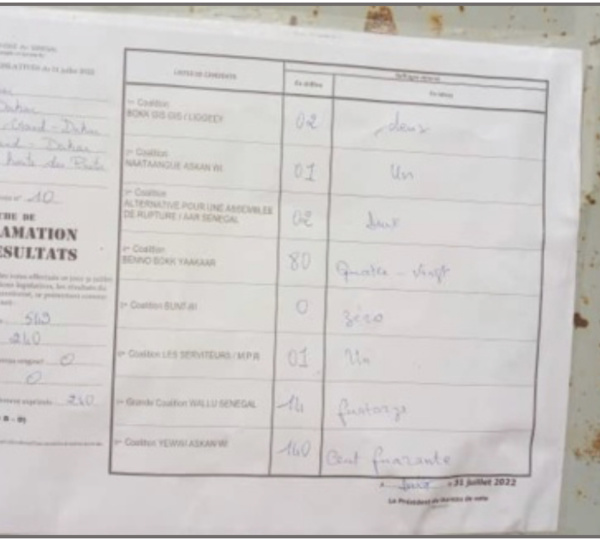 LEGISLATIVES du 31 juillet 2022
Dakar
Grand-Dakar
Dakar
10
AMATION
ESULTATS
549
240
0
0
240
LISTES DE CANDIDATS
Suffrages obtenus
En chiffres
En lettres
Coalition
BOKK GIS GIS / LIGGEEY
02
deux
Coalition
NAATAANGUE ASKAN WI
01
Un
Coalition
ALTERNATIVE POUR UNE ASSEMBLEE
DE RUPTURE / AAR SENEGAL
02
deux
Coalition
BENNO BOKK YAAKAAR
80
Quatre - Vingt
Coalition BUNT-BI
0
zéro
Coalition LES SERVITEURS / M.P.R
01
Un
Grande Coalition WALLU SENEGAL
14
Quatorze
Coalition YEWWI ASKAN WI
140
Cent Quarante
31 juillet 2022
Le Président du bureau de vote